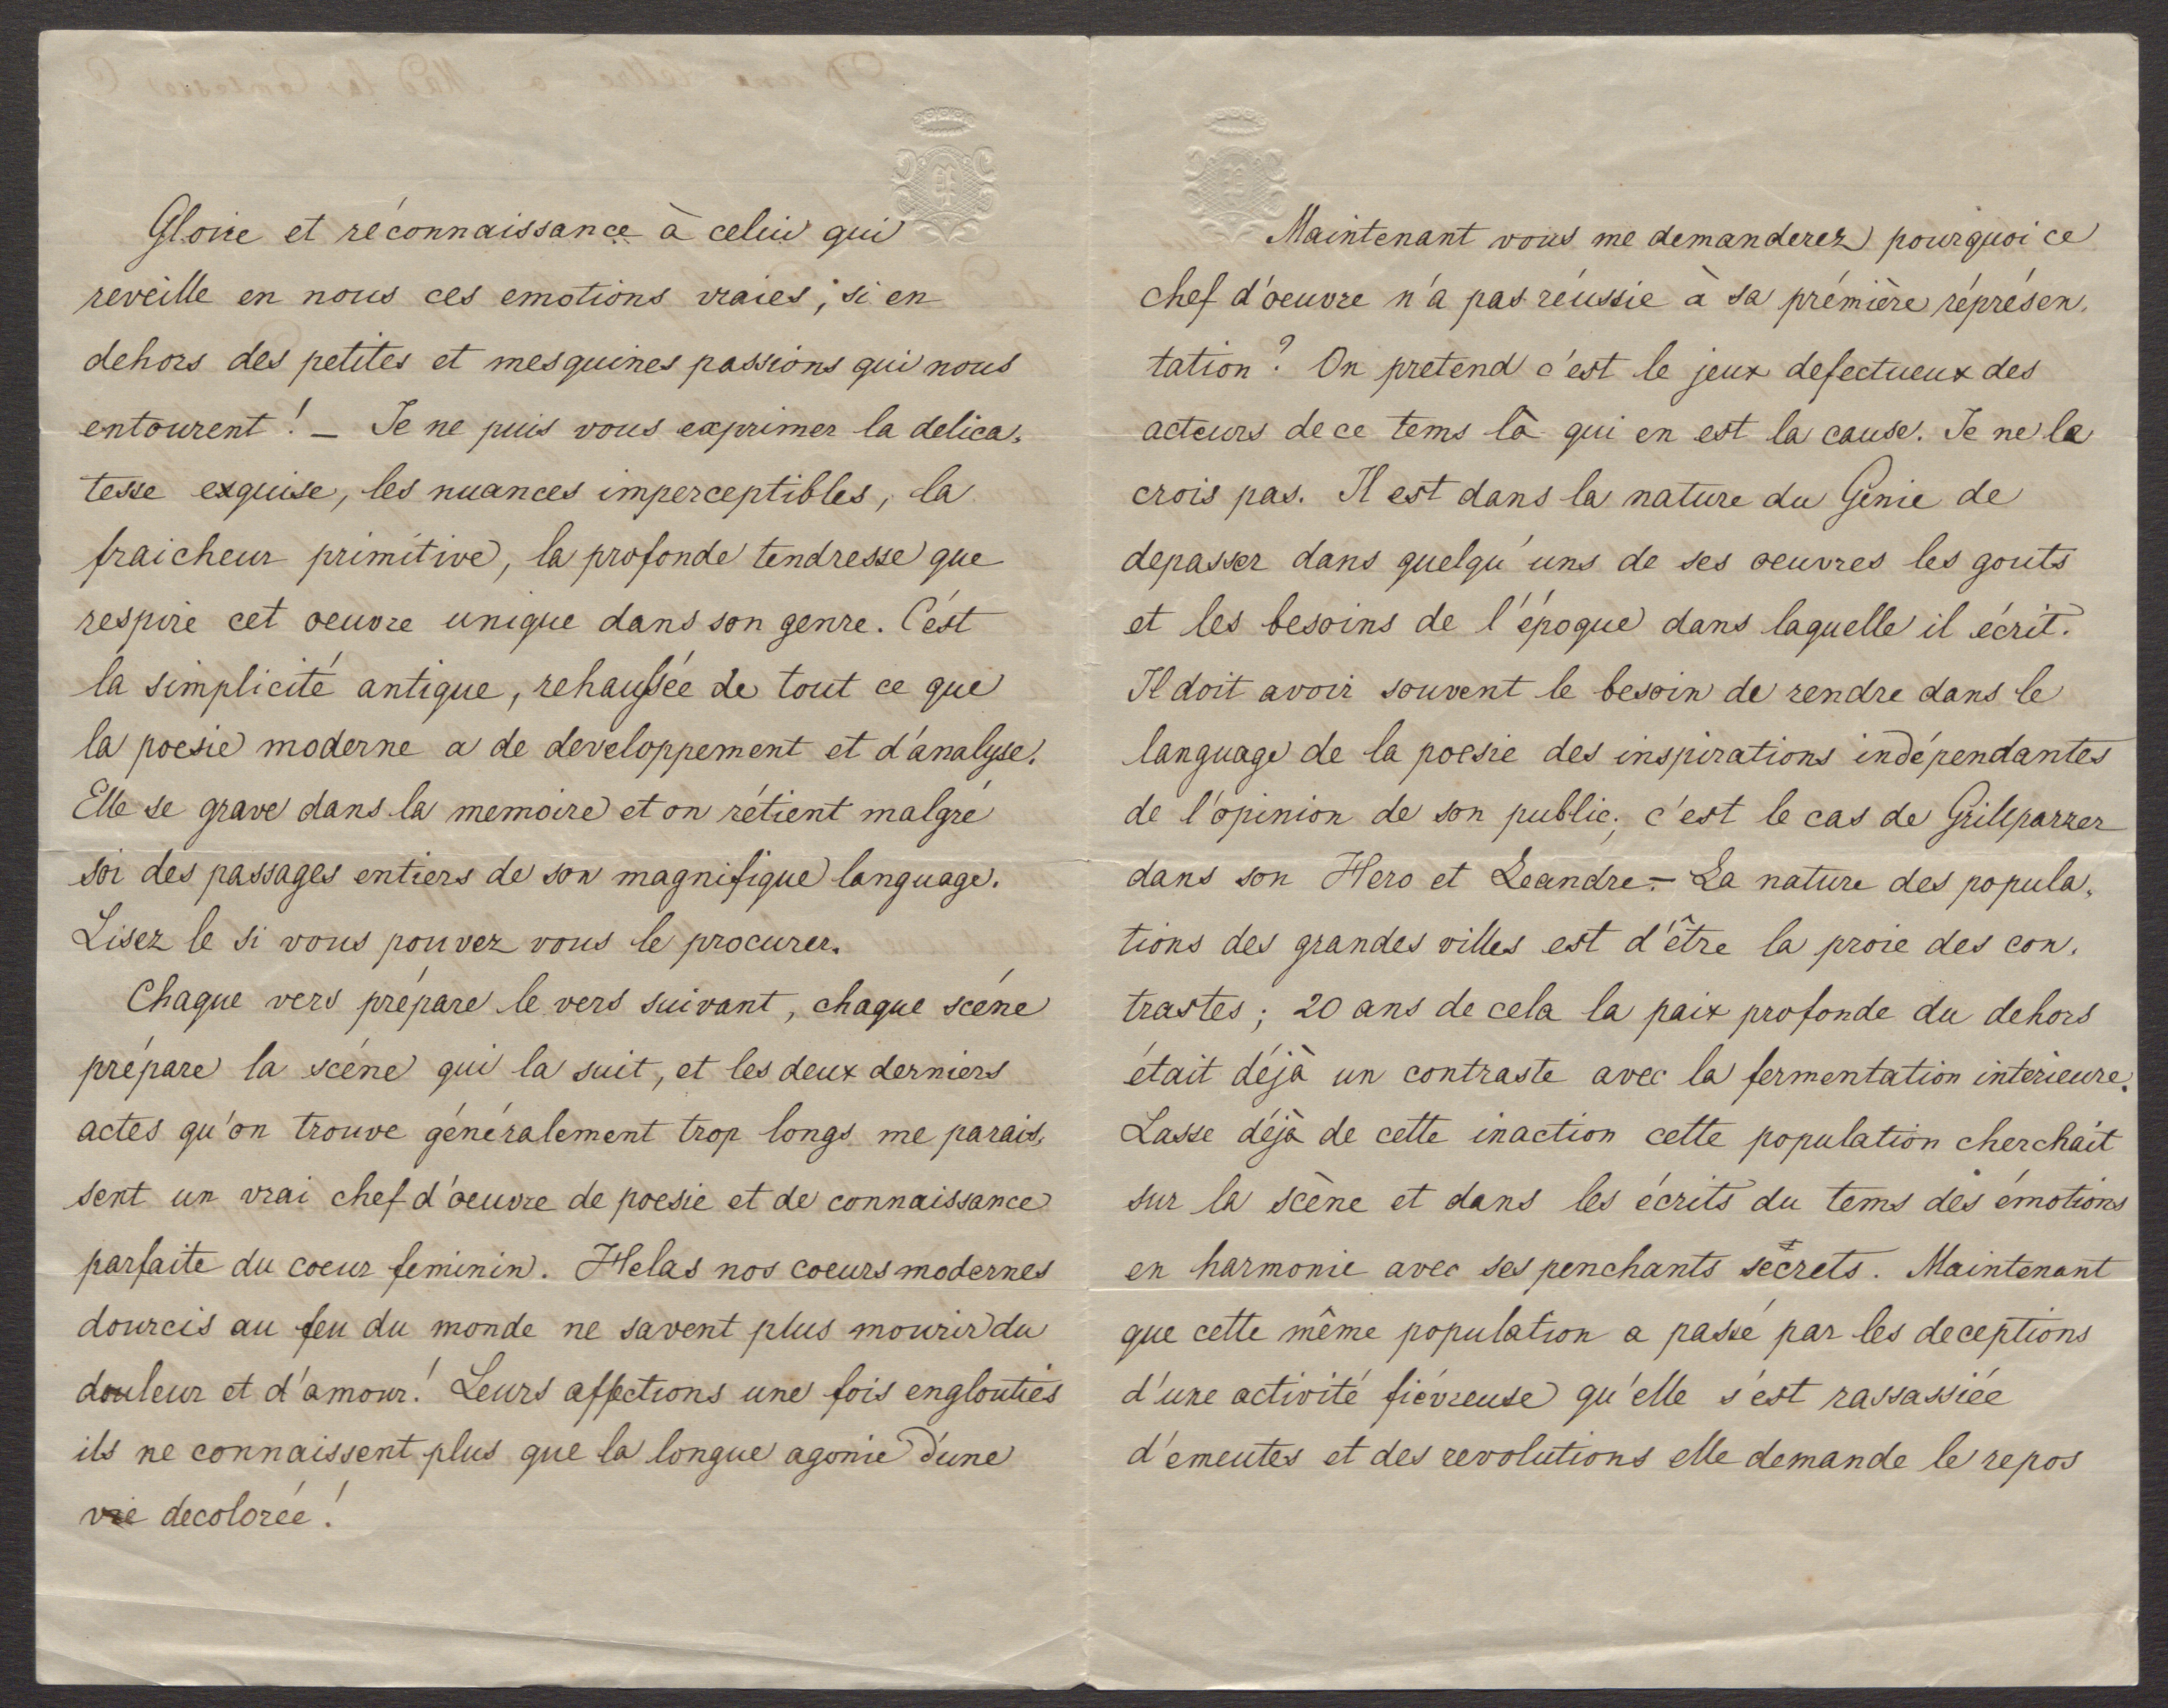 Gloire et réconnaissance à celui qui
reveille en nous ces emotions vraies, si en
dehors des petites et mesquines passions qui nous
entourent! — Je ne puis vous exprimer la delica-
tesse exquise, les nuances imperceptibles, la
fraicheur primitive, la profonde tendresse que
respire cet oeuvre unique dans son genre. C'est
la simplicité antique, rehaussée de tout ce que
la poesie moderne a de developpement et d'analyse.
Elle se grave dans la memoire et on rétient malgré
soi des passages entiers de son magnifique language.
Lisez le si vous pouvez vous le procurer.
Chaque vers prépare le vers suivant, chaque scéne
prépare la scéne qui la suit, et les deux derniers
actes qu'on trouve généralement trop longs me parais-
sent un vrai chef d'oeuvre de poesie et de connaissance
parfaite du coeur feminin. Helas nos coeurs modernes
dourcis au feu du monde ne savent plus mourir du
douleur et d'amour! Leurs affections une fois englouties
ils ne connaissent plus que la longue agonie d'une
vie decolorée!
Maintenant vous me demanderez pourquoi ce
chef d'oeuvre n'a pas réussie à sa prémière réprésen-
tation? On pretend c'est le jeux defectueux des
acteurs de ce tems là qui en est la cause. Je ne le
crois pas. Il est dans la nature du Génie de
depasser dans quelqu'uns de ses oeuvres les gouts
et les besoins de l'époque dans laquelle il écrit.
Il doit avoir souvent le besoin de rendre dans le
language de la poesie des inspirations indépendantes
de l'opinion de son public; c'est le cas de Grillparzer
dans son Hero et Leandre. — La nature des popula-
tions des grandes villes est d'être la proie des con-
trastes; 20 ans de cela la paix profonde du dehors
était déjà un contraste avec la fermentation interieure.
Lasse déjà de cette inaction cette population cherchait
sur la scène et dans les écrits du tems des émotions
en harmonie avec ses penchants secrets. Maintenant
que cette même population a passé par les deceptions
d'une activité fiévreuse qu'elle s'est rassassiée
d'emeutes et des revolutions elle demande le repos